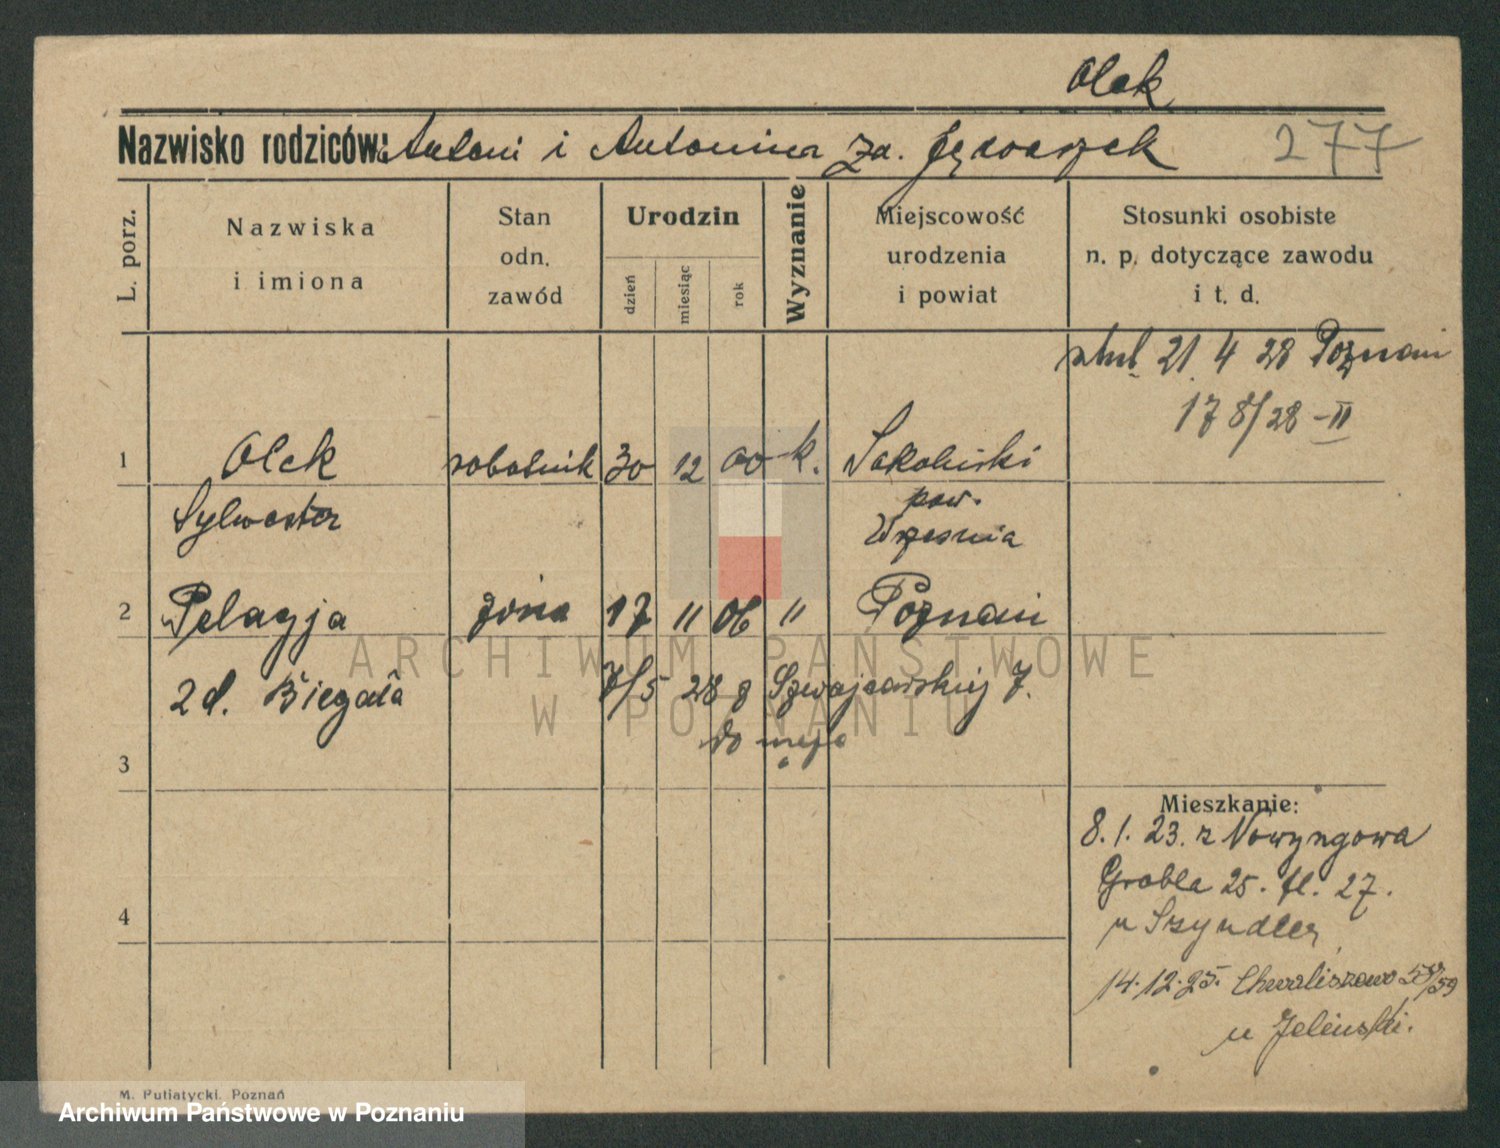 Olek
Nazwisko rodziców: Antoni i Antonina zd. Jędraszek 277
L. porz.
Nazwiska i imiona
Stan odn. zawód
Urodzin
dzień
miesiąc
rok
Wyznanie
Miejscowość urodzenia i powiat
Stosunki osobiste n. p. dotyczące zawodu i t. d.
ślub 21 4 28 Poznań
178/28 - II
1 Olek robotnik 30 12 00 k. Sokolniki
Sylwester pow.
Września
2 Pelagja żona 17 11 06 " Poznań
zd. Biegała 7/5 28 z Szwajcarskiej 7.
do męża
3
Mieszkanie:
8.1.23. z Nowyngowa
Grobla 25. fl. 27.
u Szyndler
4
14.12.25. Chwaliszewo 58/59
u Jeleński.
M. Putiatycki, Poznań
ARCHIWUM PAŃSTWOWE
W POZNANIU
Archiwum Państwowe w Poznaniu